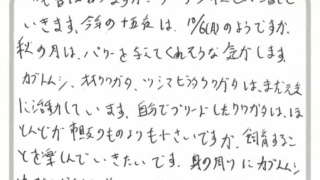 いきます。今年の十五夜は、10/6(月)のようですが、
秋の月は、パワーを与えてくれそうな気がします。
カブトムシ、オオクワガタ、ツシマヒラタクワガタは、まだ元気
に活動しています。自分でブリードしたクワガタは、ほ
とんどが市販のものよりも小さいですが、飼育するこ
とを楽しんでいきたいです。身の周りにカブトムシ